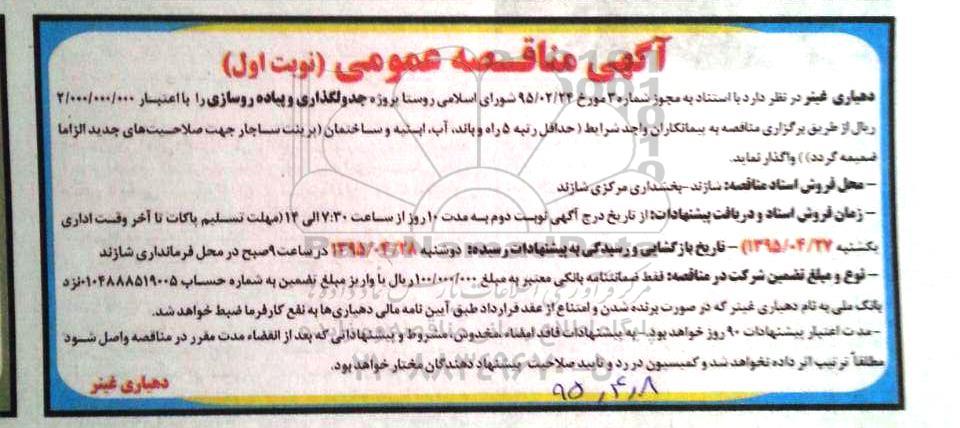 آگهی مناقصه عمومی (نوبت اول)
دهیاری غینر در نظر دارد با استناد به مجوز شماره ۳ مورخ ۹۵/۰۲/۲۴ شورای اسلامی روستا پروژه جدولگذاری و پیاده روسازی را با اعتبار ۲/۰۰۰/۰۰۰/۰۰۰
ریال از طریق برگزاری مناقصه به پیمانکاران واجد شرایط (حداقل رتبه ۵ راه و باند، آب، ابنیه و ساختمان (پرینت ساجار جهت صلاحیت‌های جدید الزاما
ضمیمه گردد)) واگذار نماید.
– محل فروش اسناد مناقصه: شازند -بخشداری مرکزی شازند
– زمان فروش اسناد و دریافت پیشنهادات: از تاریخ درج آگهی نوبت دوم به مدت ۱۰ روز از ساعت ۷:۳۰ الی ۱۴ (مهلت تسلیم پاکات تا آخر وقت اداری
یکشنبه ۱۳۹۵/۰۴/۲۷) – تاریخ بازگشایی و رسیدگی به پیشنهادات رسیده: دوشنبه ۱۳۹۵/۰۴/۲۸ در ساعت ۹ صبح در محل فرمانداری شازند
– نوع و مبلغ تضمین شرکت در مناقصه: فقط ضمانتنامه بانکی معتبر به مبلغ ۱۰۰/۰۰۰/۰۰۰ ریال یا واریز مبلغ تضمین به شماره حساب ۰۱۰۴۸۸۸۵۱۹۰۰۵ نزد
بانک ملی به نام دهیاری غینر که در صورت برنده شدن و امتناع از عقد قرارداد طبق آیین نامه مالی دهیاری‌ها به نفع کارفرما ضبط خواهد شد.
–مدت اعتبار پیشنهادات ۹۰ روز خواهد بود. به پیشنهادات فاقد امضاء، مخدوش، مشروط و پیشنهاداتی که بعد از انقضاء مدت مقرر در مناقصه واصل شود
مطلقاً ترتیب اثر داده نخواهد شد و کمیسیون در رد و تایید صلاحیت پیشنهاد دهندگان مختار خواهد بود.
دهیاری غینر
۹۵,۴,۸